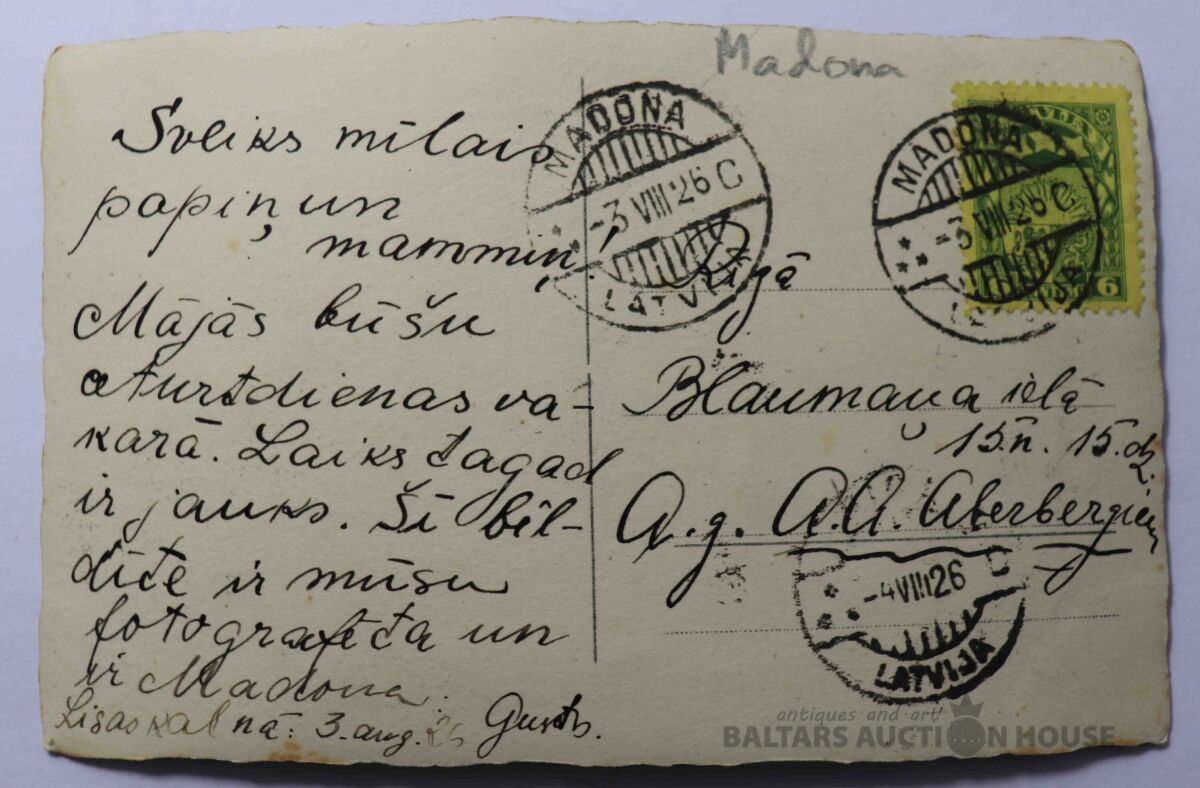 Madona
Sveiks mīlais
papiņ un
mammiņ!
Mājās būšu
ceturtdienas va-
karā. Laiks tagad
ir jauks. Šī bil-
dīte ir mūsu
fotografēta un
ir Madona.
Lisaskalnā. 3. aug. 26 Gusts.
MADONA
-3 VIII 26 C
LATVIJA
MADONA
-3 VIII 26 C
LATVIJA
6
Rīgā
Blaumaņa ielā
15.n. 15.dz.
A.g. A.A. Aberbergiem
-4 VIII 26
C
LATVIJA
antiques and art
BALTARS AUCTION HOUSE